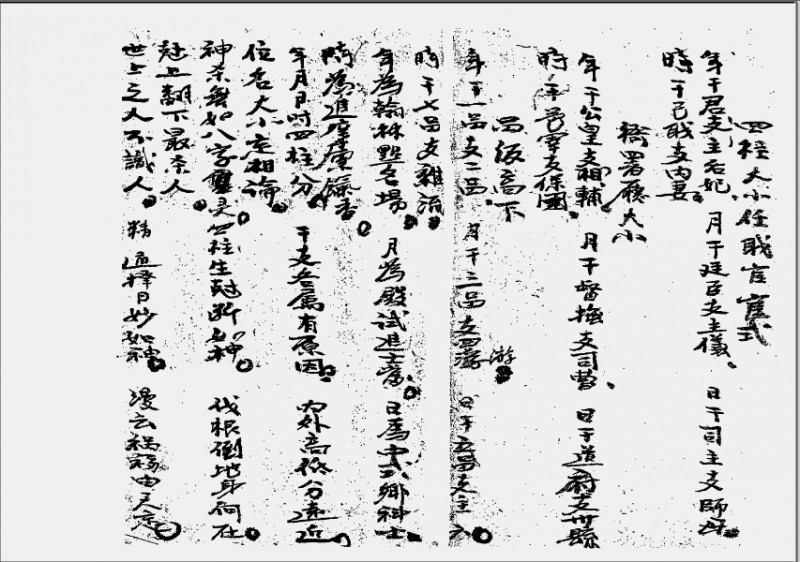 四柱大小任職官宦式
年干君 支主后妃 月干廷臣支主儀 日干司主支師母
時干己職支内妻
衙署廳大小
年干公皇支相輔 月干督撫支司曹 日干道府支州縣
時干 宰支保國
品級高下
年干一品支二品 月干三品支四 游 日干五品支主六
時干七品支雜流
年為翰林點名場 月為殿試進士 日為 鄉科士
時為進 香
年月日时四柱分 干支各属有原因 内外高低分遠近
位名大小定相論
神杀無如八字靈 四柱生尅断如神 伐根倒地身何在
尅上翻下最杀人
世上之人不識人 精通擇日妙如神 漫云禍福由天定